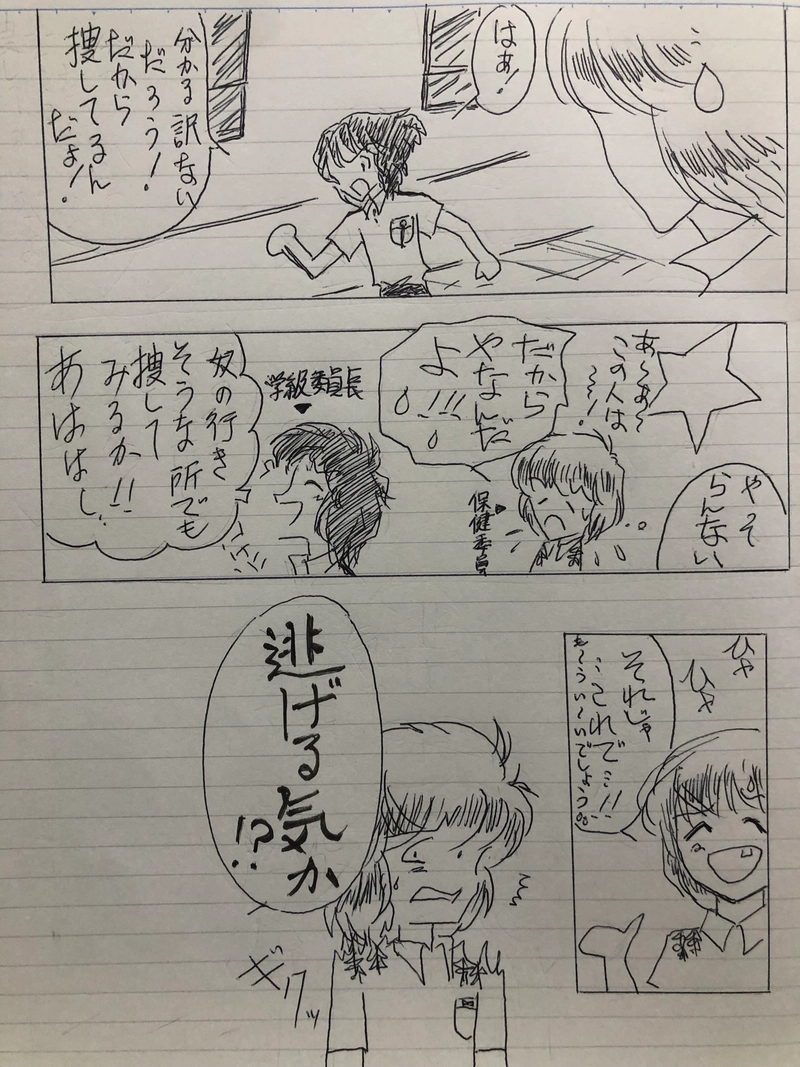 はぁ!
分かる訳ない
だろう!
だから
捜してるん
だよ!
あ〜あ〜
この人は
〜〜!
やって
らんない
だから
やなんだ
よ!!!
保健委員
学級委員長
奴の行き
そうな所でも
捜して
みるか!!
あははし
ひゃ
ひゃ
それじゃ
…これで…!!
も〜うい〜いでしょう。
逃げる気か
!?
ギクッ